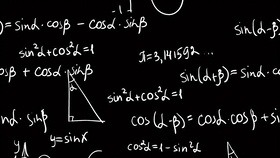 -1
= sinα · cosβ - cosα · sinβ
sin(α-β
sin²α+cos²α=1
π=3,141592 ...
sβ + cosα · sinβ
sin(α+β) = sinα · cos
α
sin²α+cos²α=1
nα · sinβ
cos(α-β) = cosα · cosβ + si
y=sinx
cos²α=1-sin²α